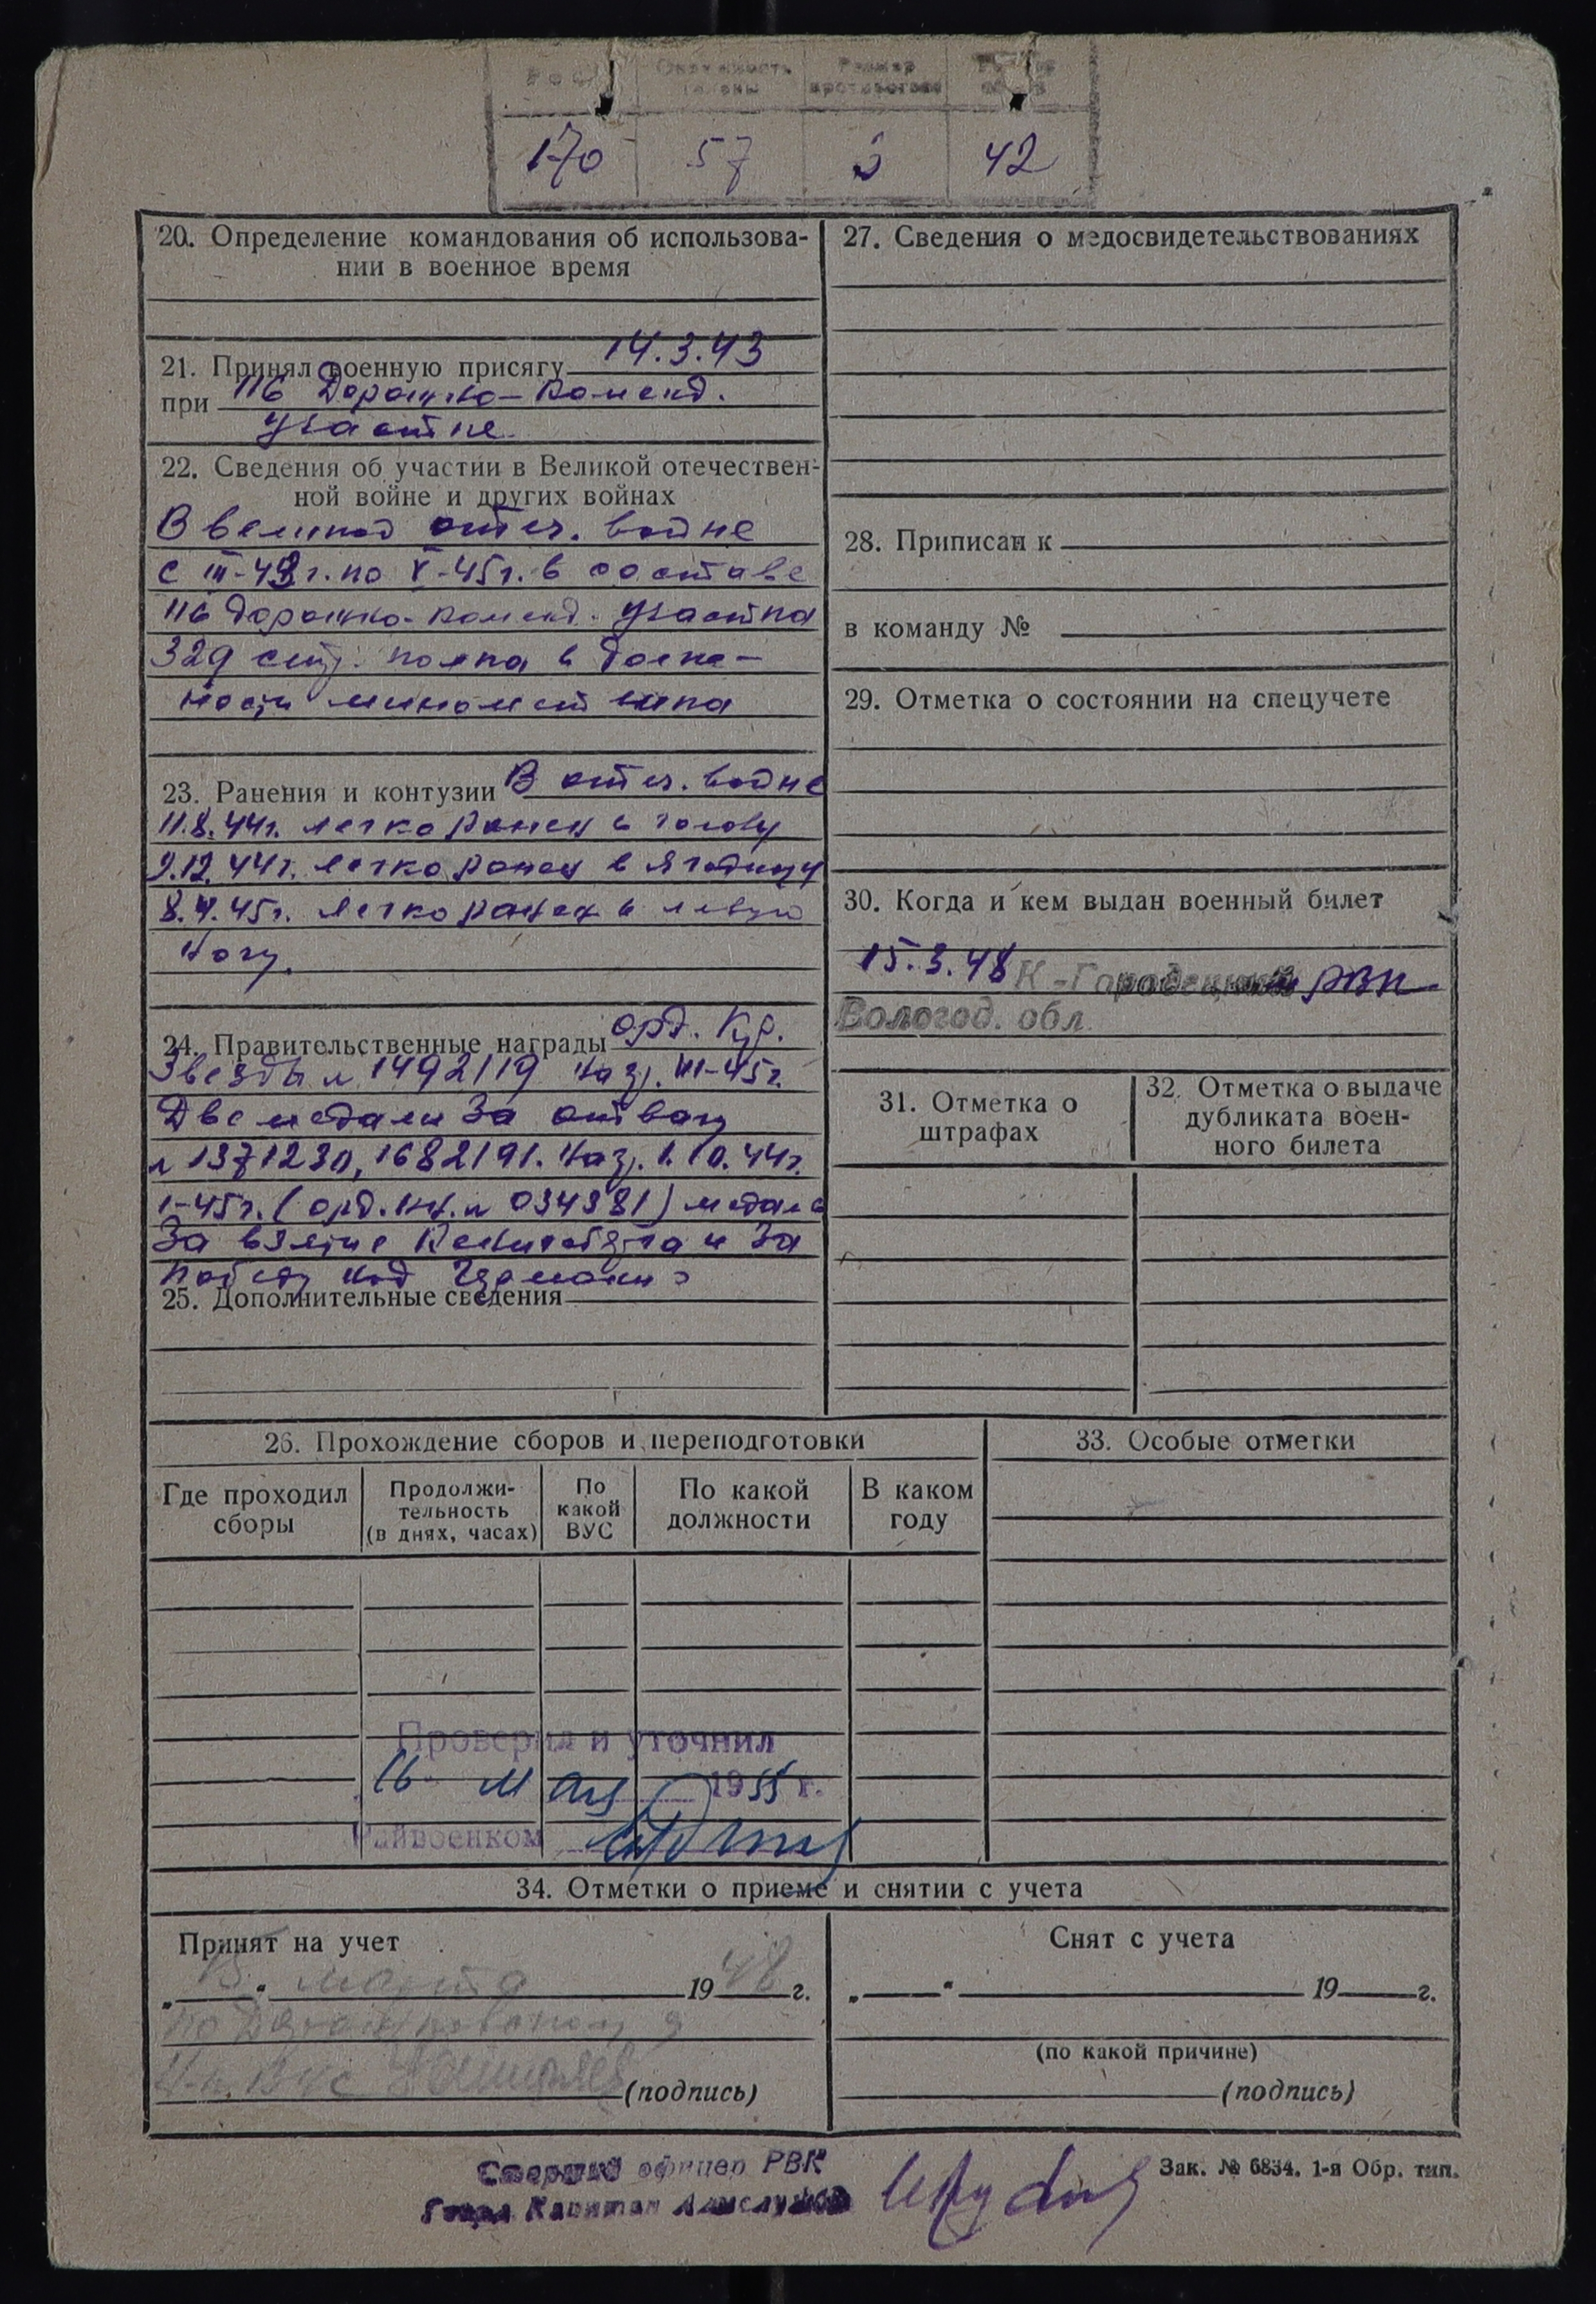 Рост Окружность головы Размер противогаза
170 57 3 42
20. Определение командования об использова-
нии в военное время
21. Принял военную присягу 14.3.43
при 116 Дорожно-коменд.
участке.
22. Сведения об участии в Великой отечествен-
ной войне и других войнах
В великой отеч. войне
с III-43г. по V-45г. в составе
116 дорожно-коменд. участка
329 стр. полка в долж-
ности минометчика
23. Ранения и контузии В отеч. войне
11.8.44г. легко ранен в голову
9.12.44г. легко ранен в ягодицу
8.4.45г. легко ранен в левую
ногу.
24. Правительственные награды орд. Кр.
Звезды № 1492119 наг. III-45г.
Две медали За отвагу
№ 1371230, 1682191. наг. 1.10.44г.
1-45г. (орд. кн. № 034381) медаль
За взятие Кенигсберга и За
победу над Германией
25. Дополнительные сведения
26. Прохождение сборов и переподготовки
Где проходил сборы
Продолжи-
тельность
(в днях, часах)
По
какой
ВУС
По какой
должности
В каком
году
Проверил и уточнил
16 мая 1955 г.
Райвоенком
27. Сведения о медосвидетельствованиях
28. Приписан к
в команду №
29. Отметка о состоянии на спецучете
30. Когда и кем выдан военный билет
15.3.48 К-Городецкий РВК
Вологод. обл.
31. Отметка о
штрафах
32. Отметка о выдаче
дубликата воен-
ного билета
33. Особые отметки
34. Отметки о приеме и снятии с учета
Принят на учет
„15“ марта 1948 г.
по
(подпись)
Снят с учета
„ “ 19 г.
(по какой причине)
(подпись)
Старший офицер РВК
Капитан
Зак. № 6834. 1-я Обр. тип.